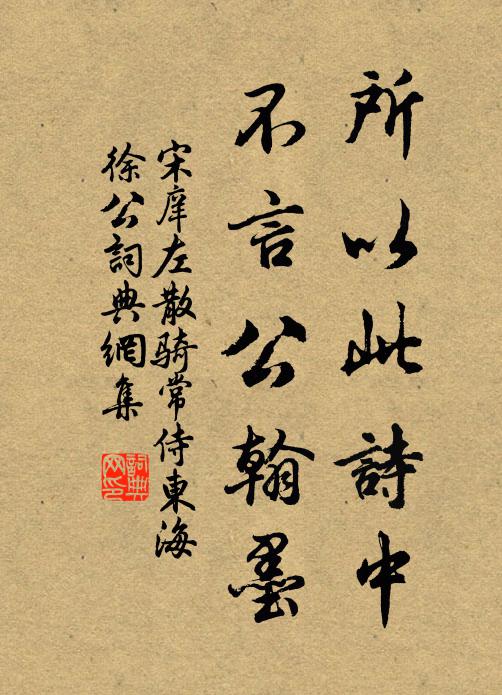 所以此詩中
不言公翰墨
宋庠左散騎常侍東海
徐公詞典網集
詞典网印